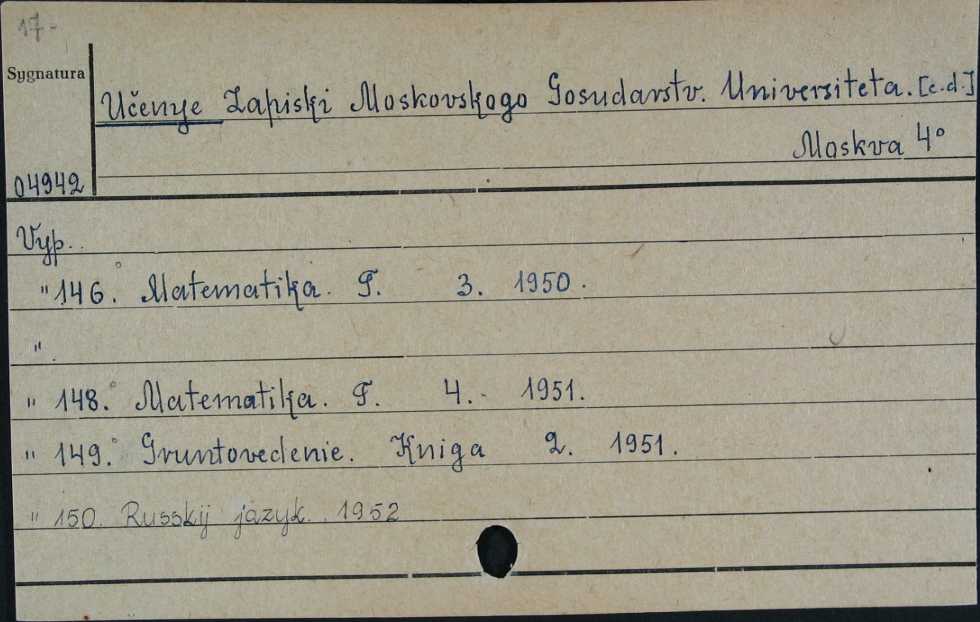 17-
Sygnatura
Učenye Zapiski Moskovskogo Gosudarstv. Universiteta. [c.d.]
Moskva 4°
04942
Vyp.
" 146. Matematika. T. 3. 1950.
"
" 148. Matematika. T. 4. 1951.
" 149. Gruntovedenie. Kniga 2. 1951.
" 150. Russkij jazyk. 1952